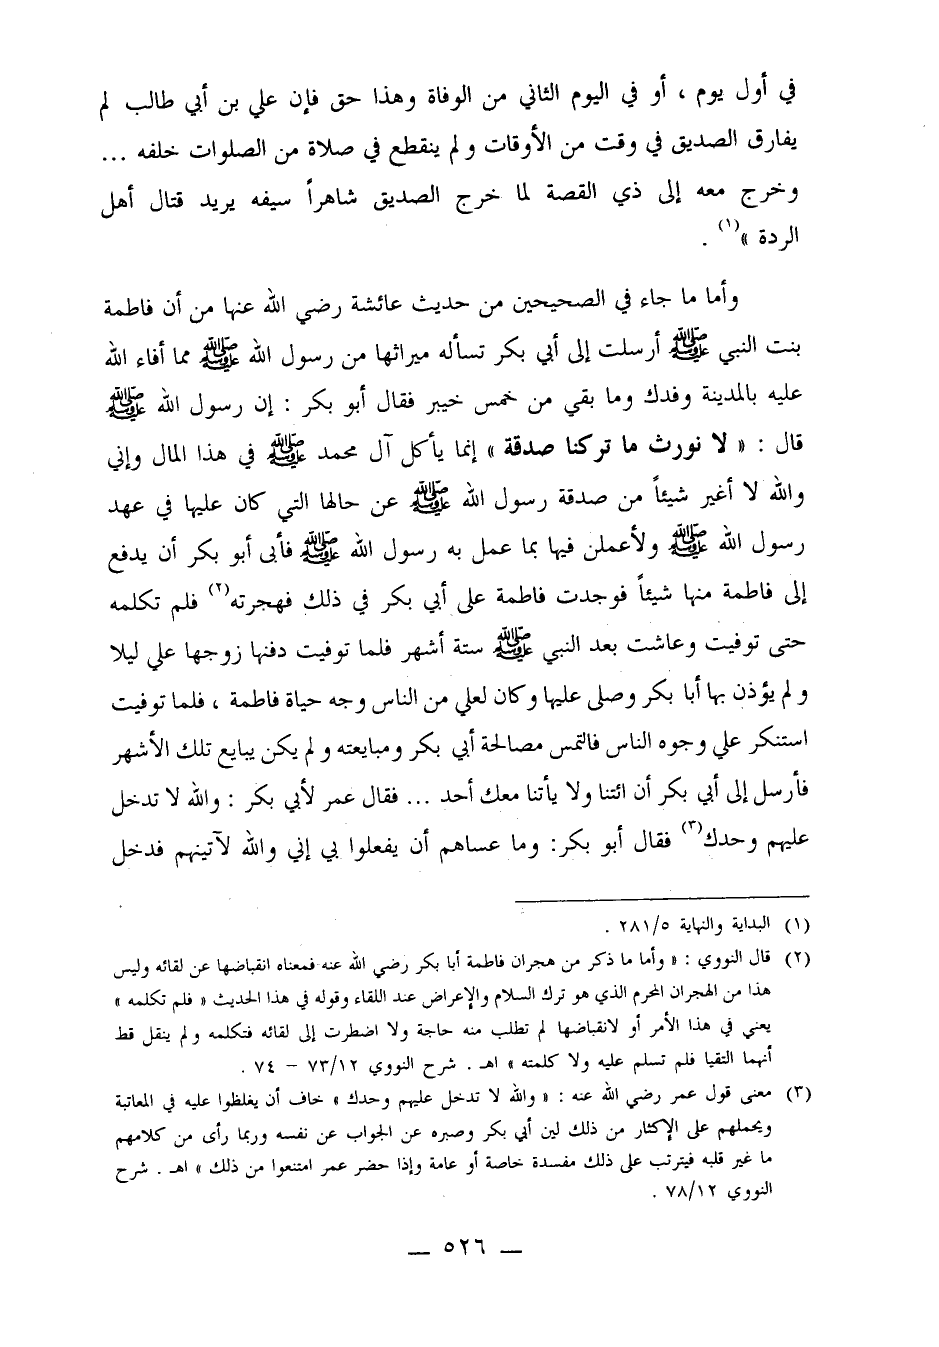 في أول يوم ، أو في اليوم الثاني من الوفاة وهذا حق فإن علي بن أبي طالب لم
يفارق الصديق في وقت من الأوقات ولم ينقطع في صلاة من الصلوات خلفه ...
وخرج معه إلى ذي القصة لما خرج الصديق شاهراً سيفه يريد قتال أهل
الردة »(١) .
وأما ما جاء في الصحيحين من حديث عائشة رضي الله عنها من أن فاطمة
بنت النبي ﷺ أرسلت إلى أبي بكر تسأله ميراثها من رسول الله ﷺ مما أفاء الله
عليه بالمدينة وفدك وما بقي من خمس خيبر فقال أبو بكر : إن رسول الله ﷺ
قال : « لا نورث ما تركنا صدقة » إنما يأكل آل محمد ﷺ في هذا المال وإني
والله لا أغير شيئاً من صدقة رسول الله ﷺ عن حالها التي كان عليها في عهد
رسول الله ﷺ ولأعملن فيها بما عمل به رسول الله ﷺ فأبى أبو بكر أن يدفع
إلى فاطمة منها شيئاً فوجدت فاطمة على أبي بكر في ذلك فهجرته(٢) فلم تكلمه
حتى توفيت وعاشت بعد النبي ﷺ ستة أشهر فلما توفيت دفنها زوجها علي ليلا
ولم يؤذن بها أبا بكر وصلى عليها وكان لعلي من الناس وجه حياة فاطمة ، فلما توفيت
استنكر علي وجوه الناس فالتمس مصالحة أبي بكر ومبايعته ولم يكن يبايع تلك الأشهر
فأرسل إلى أبي بكر أن ائتنا ولا يأتنا معك أحد ... فقال عمر لأبي بكر : والله لا تدخل
عليهم وحدك(٣) فقال أبو بكر: وما عساهم أن يفعلوا بي إني والله لآتينهم فدخل
(١) البداية والنهاية ٢٨١/٥ .
(٢) قال النووي : « وأما ما ذكر من هجران فاطمة أبا بكر رضي الله عنه فمعناه انقباضها عن لقائه وليس
هذا من الهجران المحرم الذي هو ترك السلام والإعراض عند اللقاء وقوله في هذا الحديث « فلم تكلمه »
يعني في هذا الأمر أو لانقباضها لم تطلب منه حاجة ولا اضطرت إلى لقائه فتكلمه ولم ينقل قط
أنهما التقيا فلم تسلم عليه ولا كلمته » اهـ . شرح النووي ٧٣/١٢ – ٧٤ .
(٣) معنى قول عمر رضي الله عنه : « والله لا تدخل عليهم وحدك » خاف أن يغلظوا عليه في المعاتبة
ويحملهم على الإكثار من ذلك لين أبي بكر وصبره عن الجواب عن نفسه وربما رأى من كلامهم
ما غير قلبه فيترتب على ذلك مفسدة خاصة أو عامة وإذا حضر عمر امتنعوا من ذلك » اهـ . شرح
النووي ٧٨/١٢ .
— ٥٢٦ —